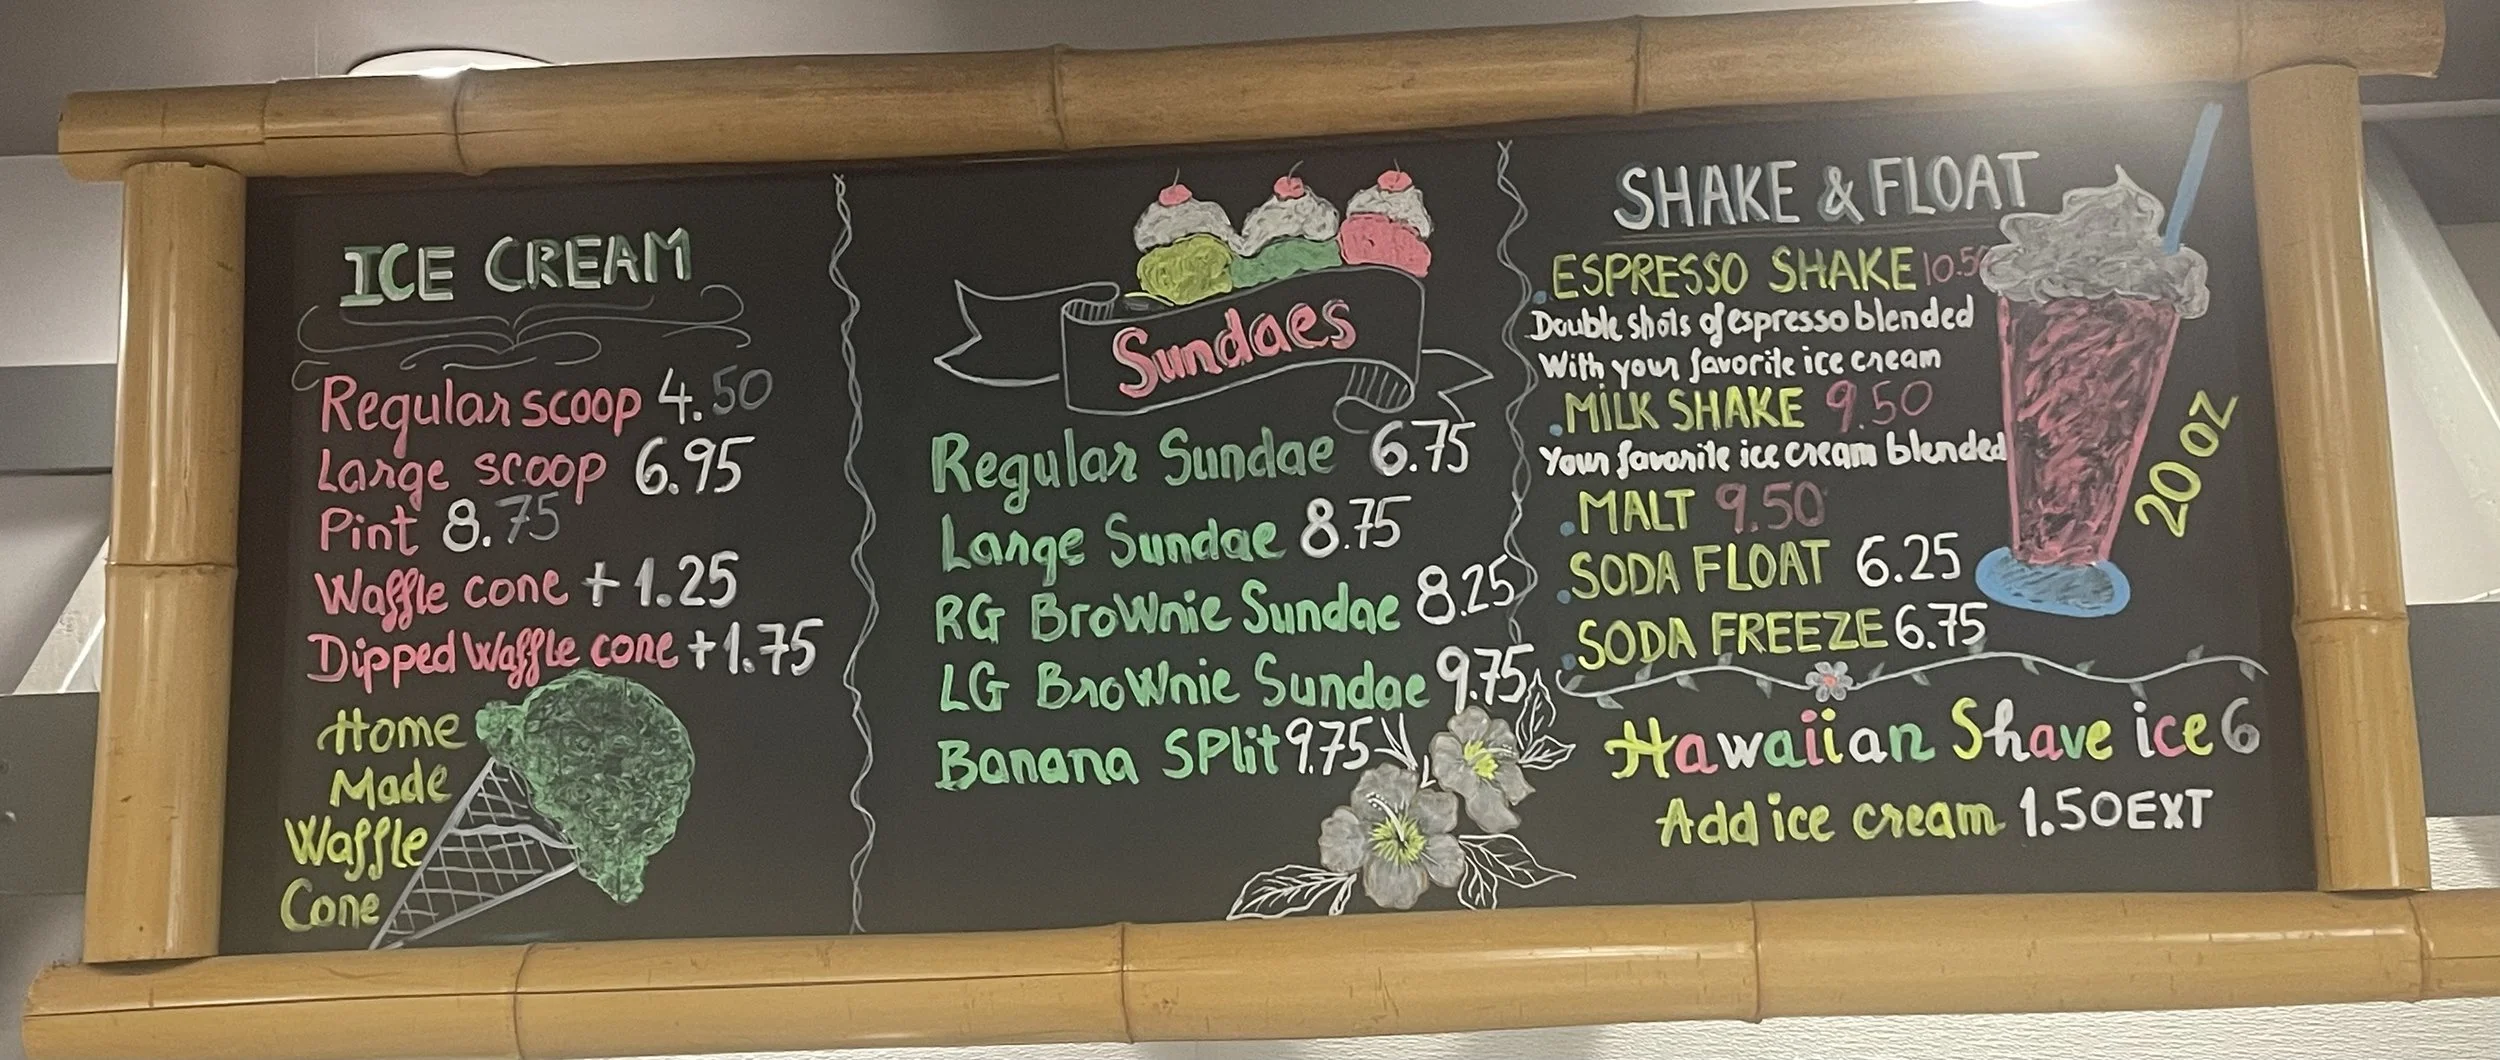 ICE CREAM
Regular scoop 4.50
Large scoop 6.95
Pint 8.75
Waffle cone + 1.25
Dipped Waffle cone +1.75
Home
Made
Waffle
Cone
Sundaes
Regular Sundae 6.75
Large Sundae 8.75
RG BroWnie Sundae 8.25
LG BroWnie Sundae 9.75
Banana SPlit 9.75
SHAKE & FLOAT
.ESPRESSO SHAKE 10.50
Double shots of espresso blended
With your favorite ice cream
.MiLK SHAKE 9.50
Your favorite ice cream blended
.MALT 9.50
.SODA FLOAT 6.25
.SODA FREEZE 6.75
20 oz
Hawaiian Shave ice 6
Add ice cream 1.50 EXT